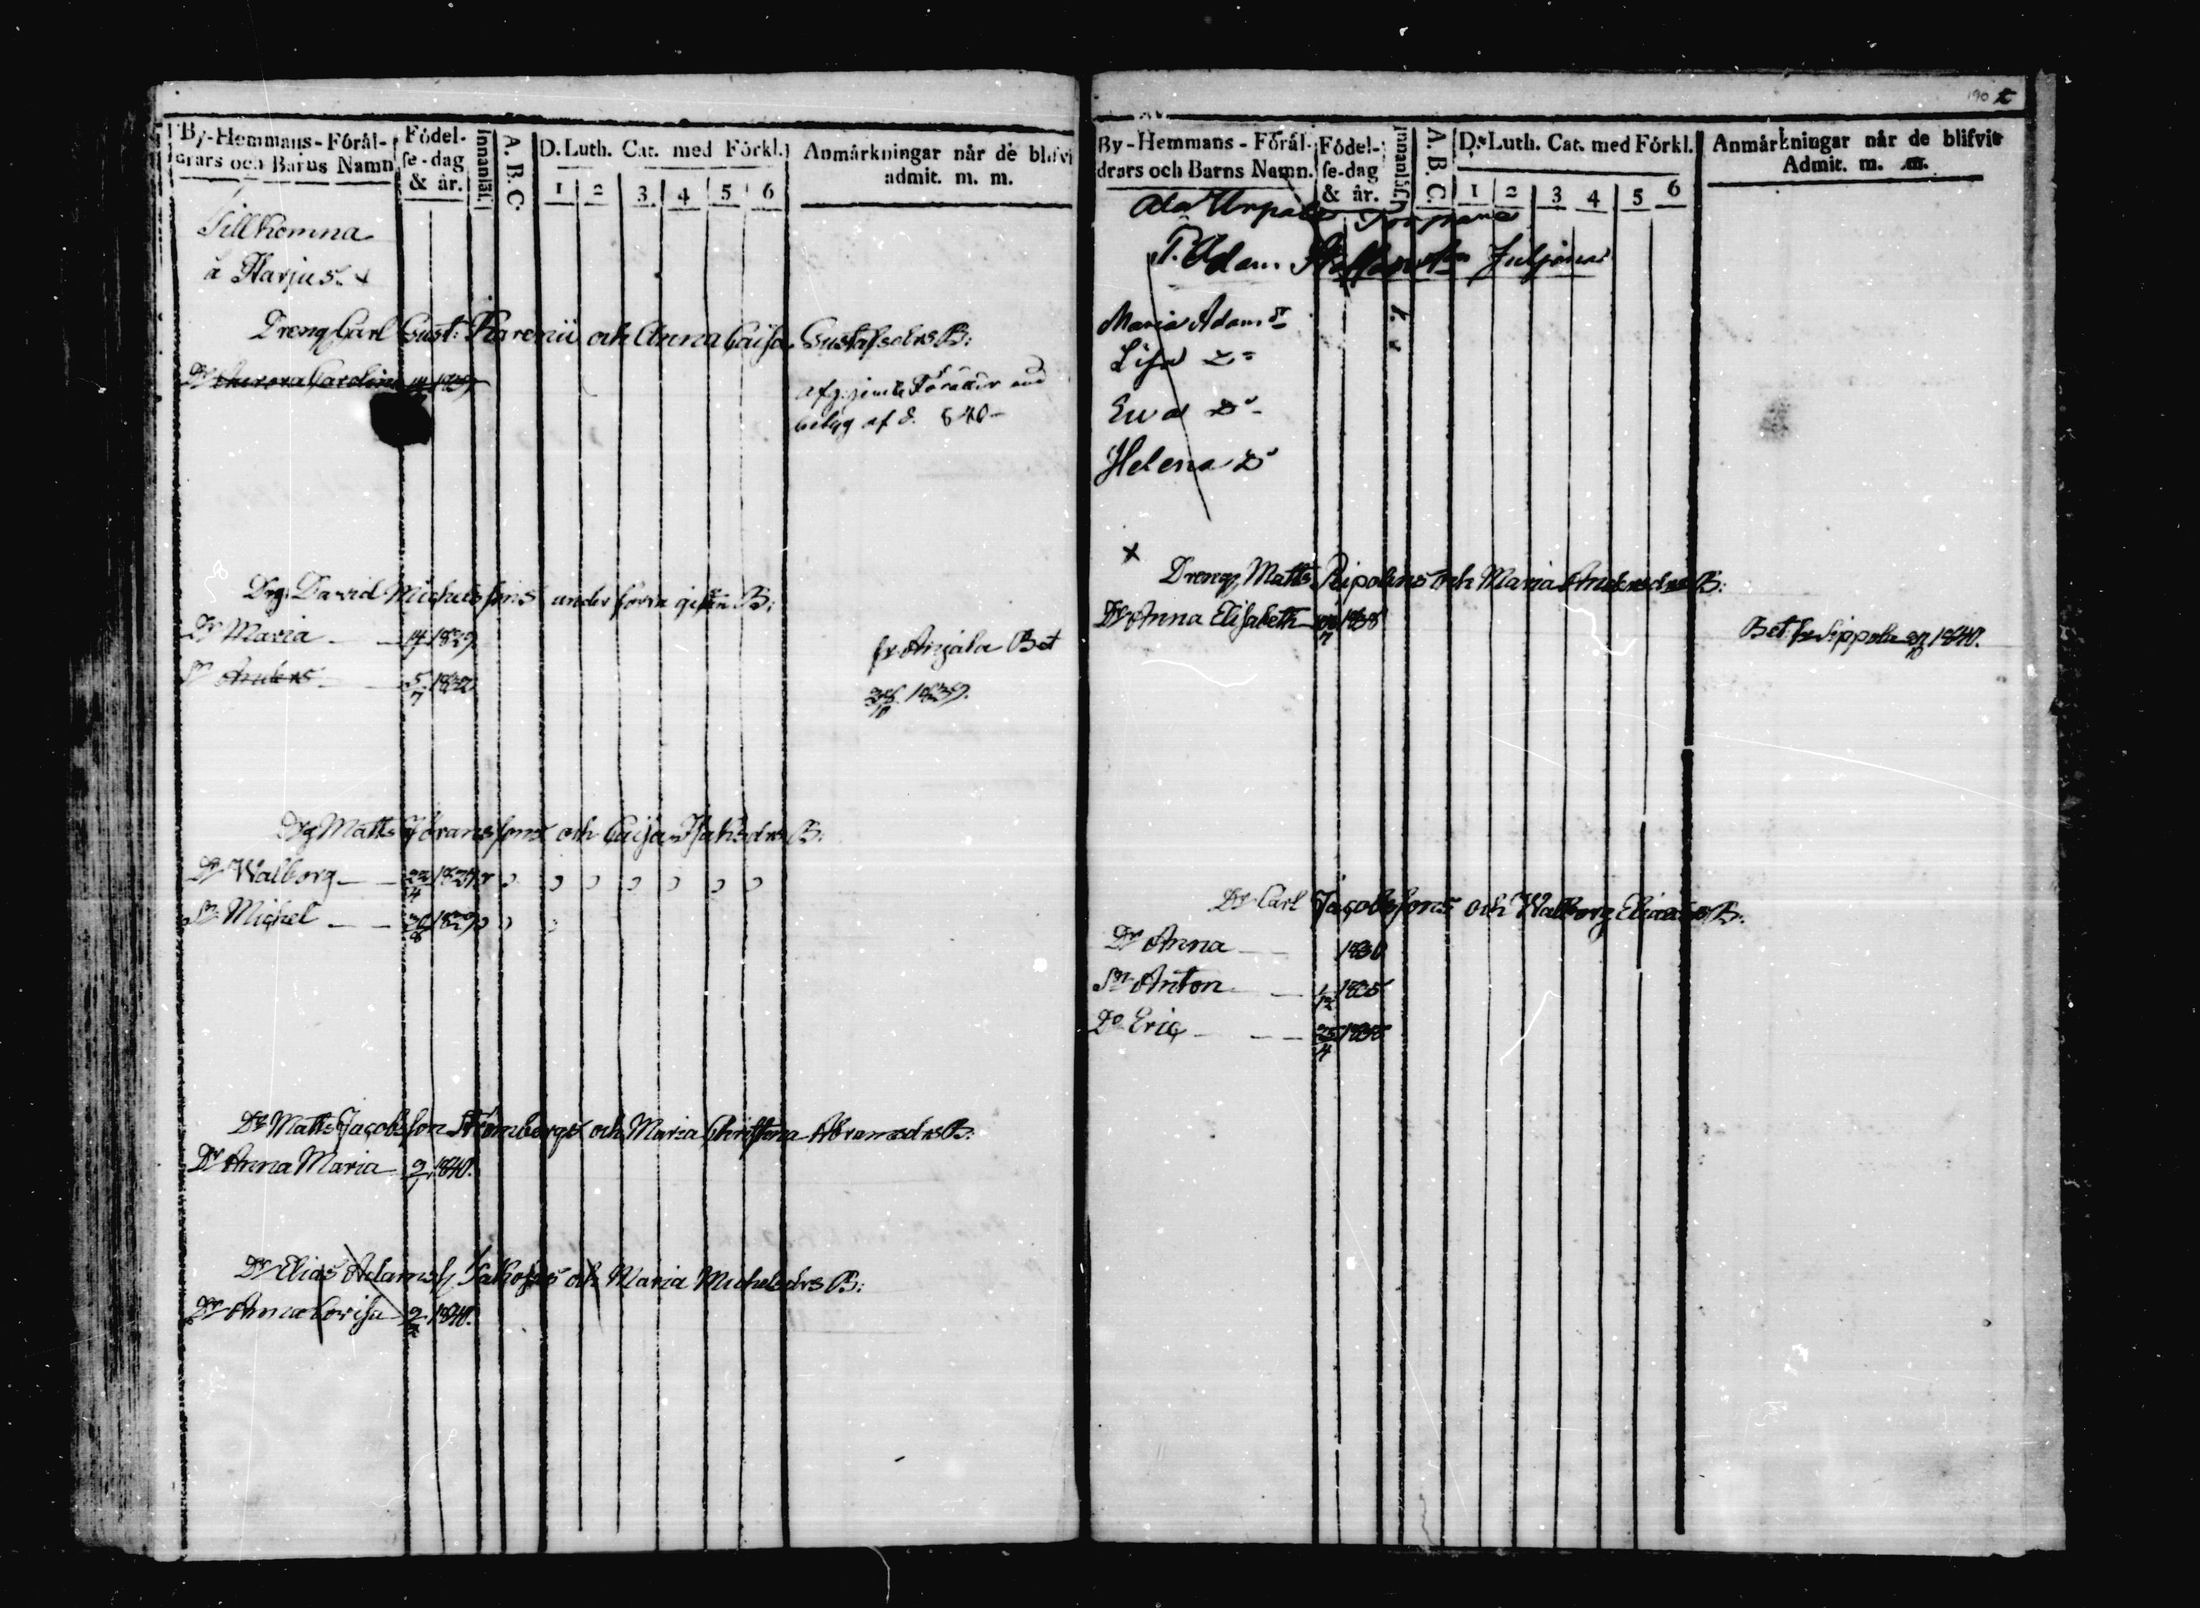 By-Hemmans-Förål-
drars och Barns Namn
Födel-
se-dag
& år.
Innanläs.
A. B. C.
D. Luth. Cat. med Förkl.
1 2 3 4 5 6
Anmärkningar når de blifvi
admit. m. m.
Tillkomna
å Harjus.
Dreng Carl Gust: och Anna Caisa Gustafsdrs B:
Dr Aurora Carolina 1829
belyg af d. 840
Drg David Michelssons under förra giftet B:
Dr Maria 14 1829
Sn Anders 5/7 1832
fr Anjala Bet
28/10 1839.
Drg Matts Göranssons och Caisa Isaksdrs B:
Dr Walborg 22/4 1824
Sn Michel 26/8 1829
Dr Matts Jacobsson Strömbergs och Maria Christina Abramsdrs B:
Dr Anna Maria 9/1 1840.
Dr Elias Adamss och Maria Michelsdrs B:
Dr Anna Lovisa 2 1840.
190
By-Hemmans-Förål-
drars och Barns Namn.
Födel-
se-dag
& år.
Innanläs.
A. B. C.
Ds Luth. Cat. med Förkl.
1 2 3 4 5 6
Anmärkningar når de blifvit
Admit. m. m.
Ala Urpala
T. Adam
Maria Adamsdr
Lisa Do
Eva Do
Helena Do
Dreng Matts och Maria Andersdrs B:
Dr Anna Elisabeth 1838
Bet. fr Sippola 1840.
Dr Carl Jacobssons och Walborg Eliædrs B:
Dr Anna 1830
Sn Anton 1/12 1835
Do Eric 25/4 1838